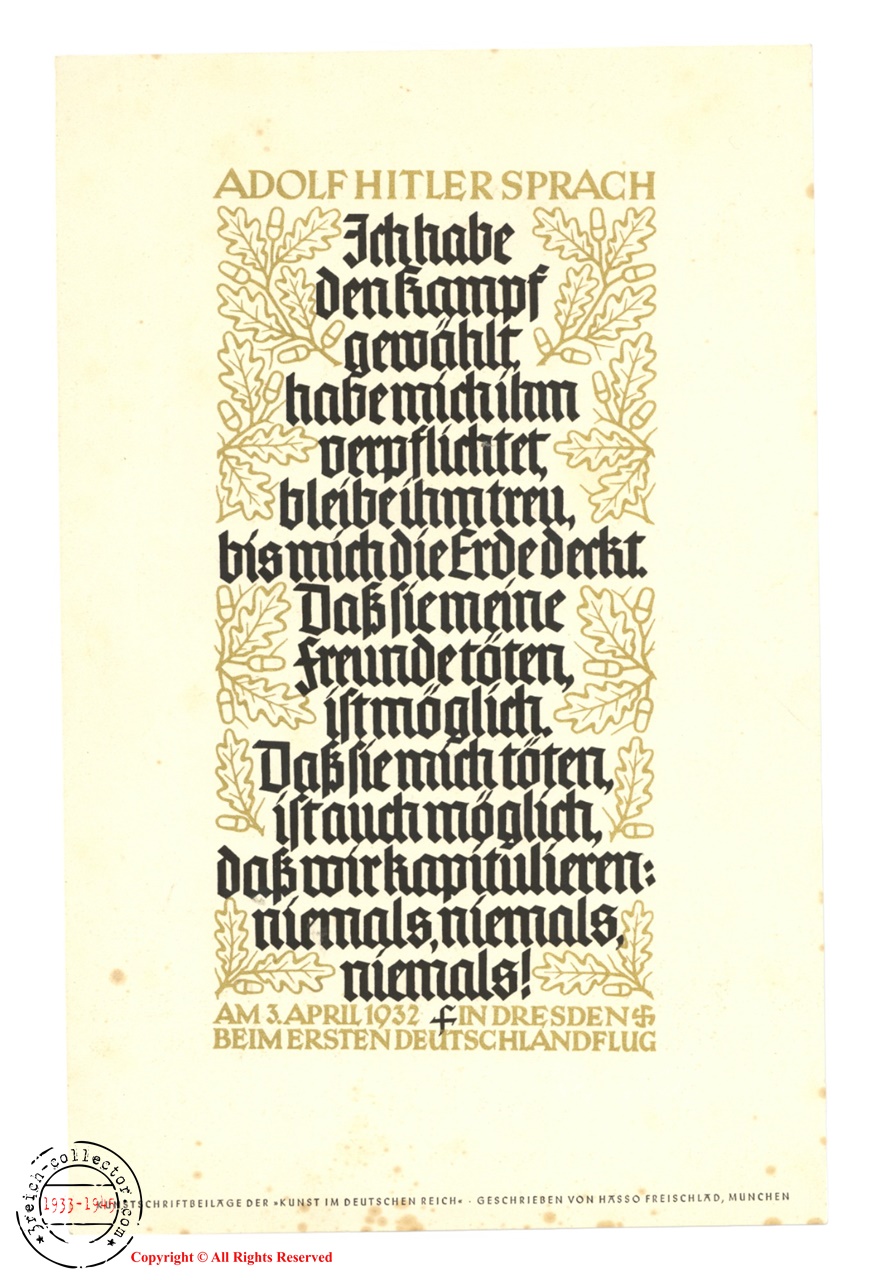 ADOLF HITLER SPRACH
Ich habe
den Kampf
gewählt,
habe mich ihm
verpflichtet,
bleibe ihm treu,
bis mich die Erde deckt.
Daß sie meine
Freunde töten,
ist möglich.
Daß sie mich töten,
ist auch möglich,
daß wir kapitulieren:
niemals, niemals,
niemals!
AM 3. APRIL 1932 IN DRESDEN
BEIM ERSTEN DEUTSCHLANDFLUG
KUNSTSCHRIFTBEILAGE DER »KUNST IM DEUTSCHEN REICH« · GESCHRIEBEN VON HASSO FREISCHLAD, MÜNCHEN
3reich-collector.com
1933-1945
Copyright © All Rights Reserved